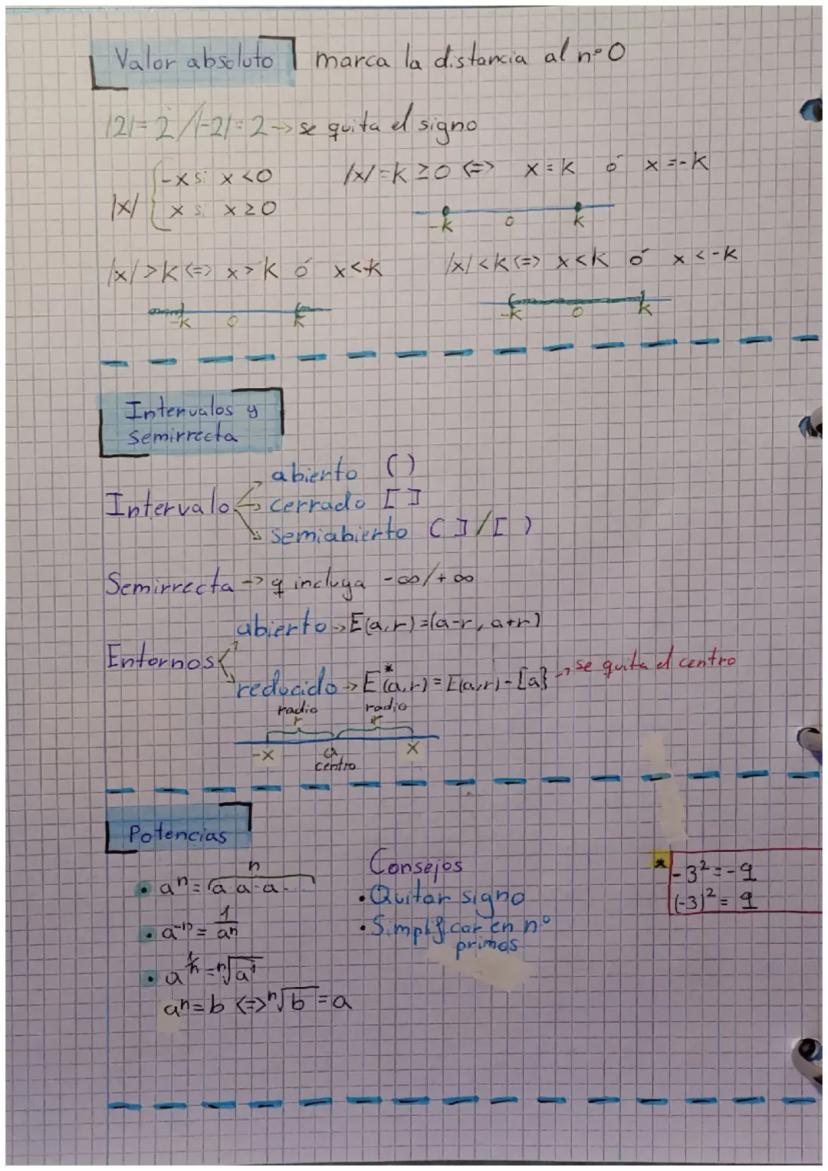 Valor absoluto marca la distancia al nº 0
|2| = 2 / |-2| = 2 -> se quita el signo
|x| { -x si x < 0
x si x ≥ 0
|x| = k ≥ 0 <=> x = k ó x = -k
-k 0 k
|x| > k <=> x > k ó x < -k
-k 0 k
|x| < k <=> x < k ó x < -k
-k 0 k
Intervalos y
semirrecta
Intervalo
abierto ( )
cerrado [ ]
semiabierto ( ] / [ )
Semirrecta -> q incluya -∞/+∞
Entornos
abierto -> E(a,r) = (a-r, a+r)
reducido -> E*(a,r) = E(a,r) - [a} -> se quita el centro
radio radio
r r
-x a x
centro
Potencias
• aⁿ = a·a·a· n
• a⁻ⁿ = 1/aⁿ
• a^1/n = ⁿ√a¹
aⁿ = b <=> ⁿ√b = a
Consejos
• Quitar signo
• Simplificar en nº
primos
* -3² = -9
(-3)² = 9